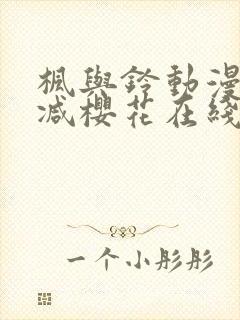 楓與鈴動漫
減櫻花在綫
一个小彤彤